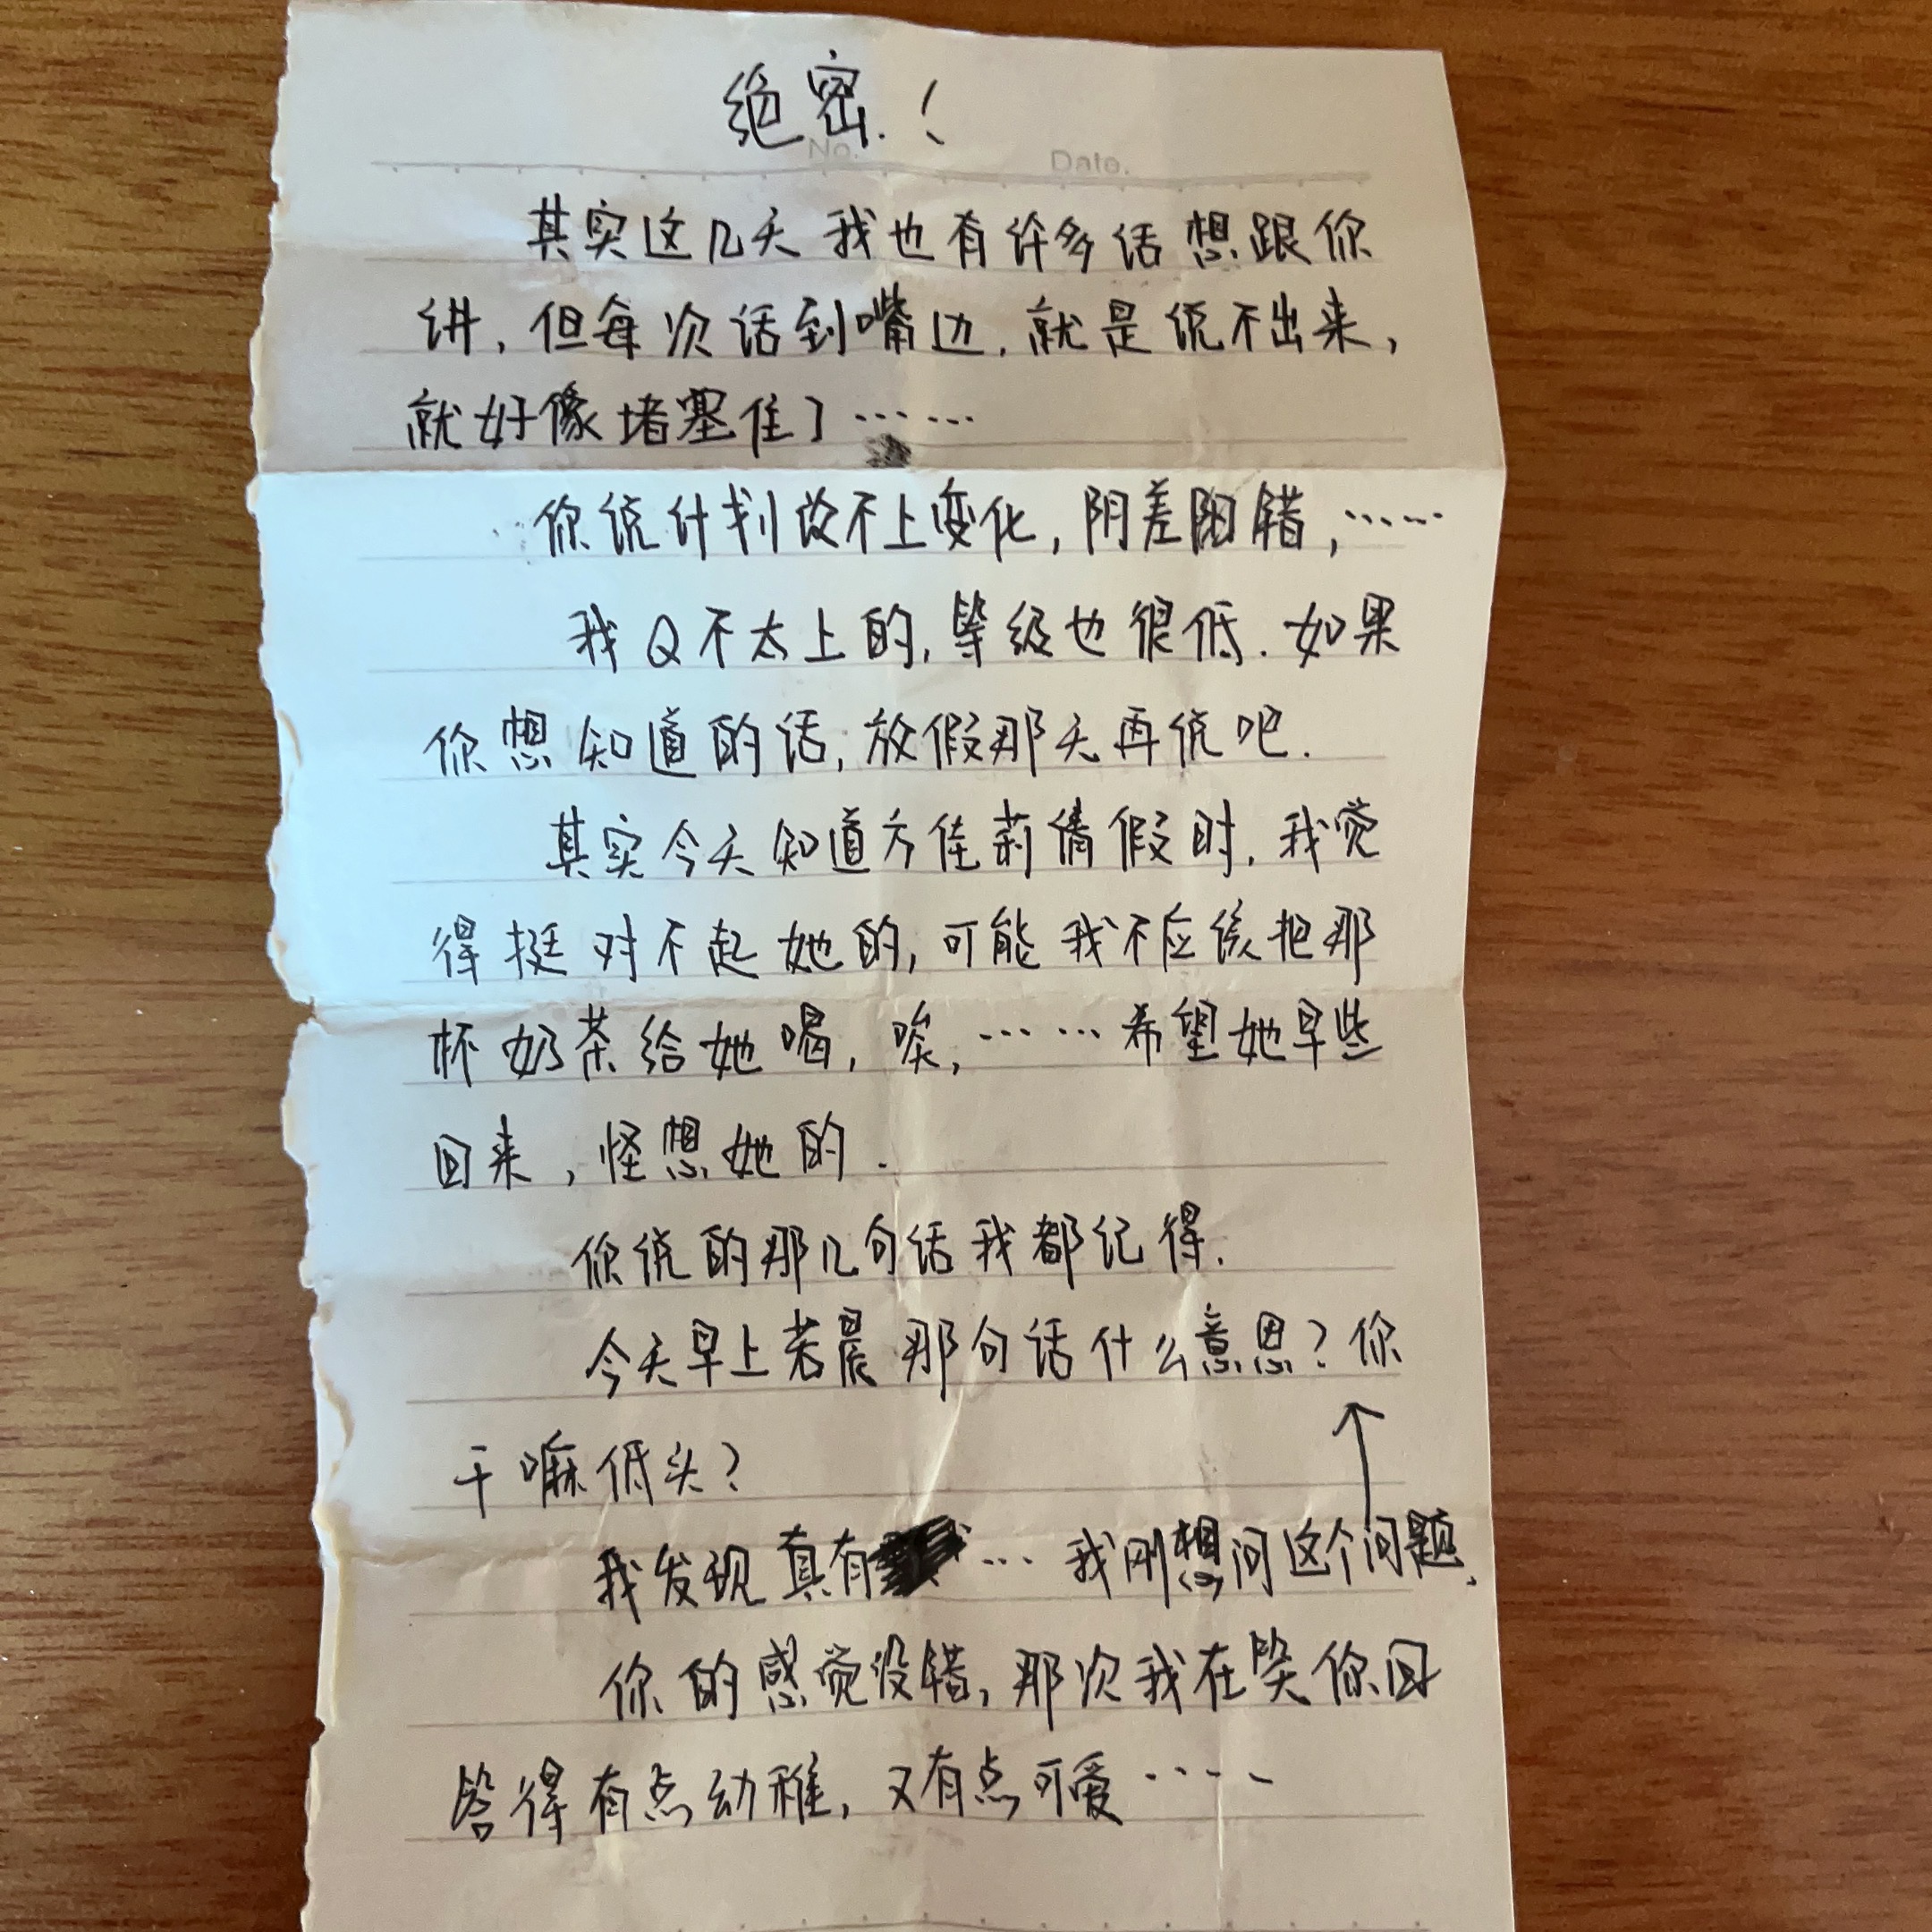 绝密.！
No. Date.
其实这几天我也有许多话想跟你
讲，但每次话到嘴边，就是说不出来，
就好像堵塞住了……
你说计划改不上变化，阴差阳错，……
我Q不太上的，等级也很低.如果
你想知道的话，放假那天再说吧.
其实今天知道方佳莉请假时，我觉
得挺对不起她的，可能我不应该把那
杯奶茶给她喝，唉，……希望她早些
回来，怪想她的.
你说的那几句话我都记得.
今天早上若晨那句话什么意思？你
干嘛低头？
我发现真有…我刚想问这个问题.
你的感觉没错，那次我在笑你回
答得有点幼稚，又有点可爱……